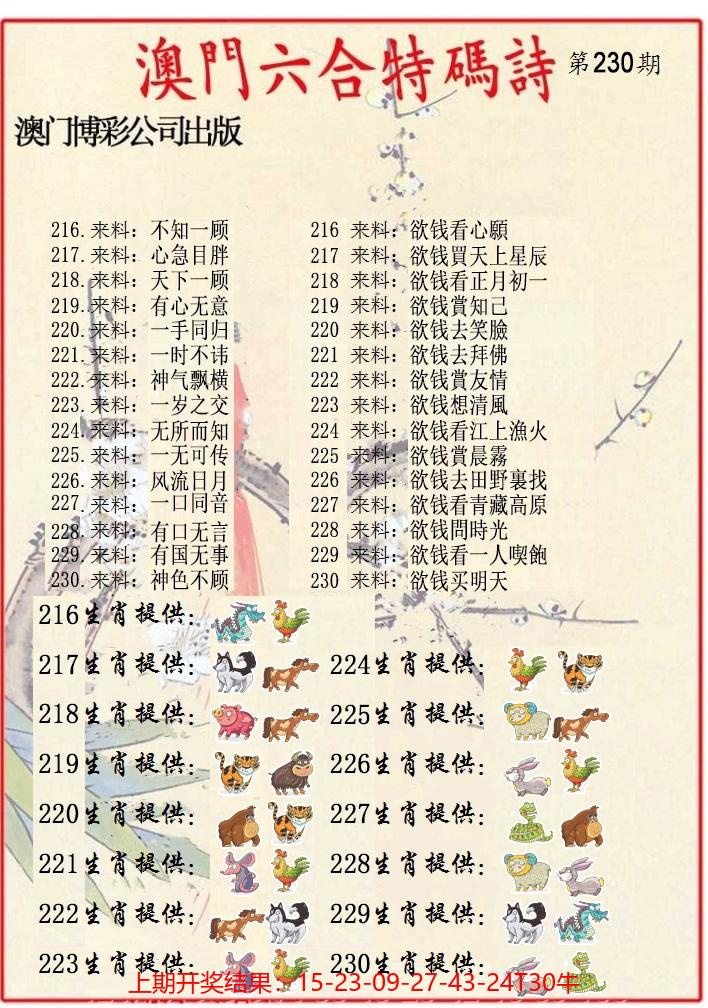 澳門六合特碼詩 第230期
澳门博彩公司出版
216. 来料：不知一顾
217. 来料：心急目胖
218. 来料：天下一顾
219. 来料：有心无意
220. 来料：一手同归
221. 来料：一时不讳
222. 来料：神气飘横
223. 来料：一岁之交
224. 来料：无所而知
225. 来料：一无可传
226. 来料：风流日月
227. 来料：一口同音
228. 来料：有口无言
229. 来料：有国无事
230. 来料：神色不顾
216 来料：欲钱看心願
217 来料：欲钱買天上星辰
218 来料：欲钱看正月初一
219 来料：欲钱賞知己
220 来料：欲钱去笑臉
221 来料：欲钱去拜佛
222 来料：欲钱賞友情
223 来料：欲钱想清風
224 来料：欲钱看江上漁火
225 来料：欲钱賞晨霧
226 来料：欲钱去田野裏找
227 来料：欲钱看青藏高原
228 来料：欲钱問時光
229 来料：欲钱看一人喫飽
230 来料：欲钱买明天
216生肖提供：
217生肖提供：
218生肖提供：
219生肖提供：
220生肖提供：
221生肖提供：
222生肖提供：
223生肖提供：
224生肖提供：
225生肖提供：
226生肖提供：
227生肖提供：
228生肖提供：
229生肖提供：
230生肖提供：
上期开奖结果：15-23-09-27-43-24T30牛